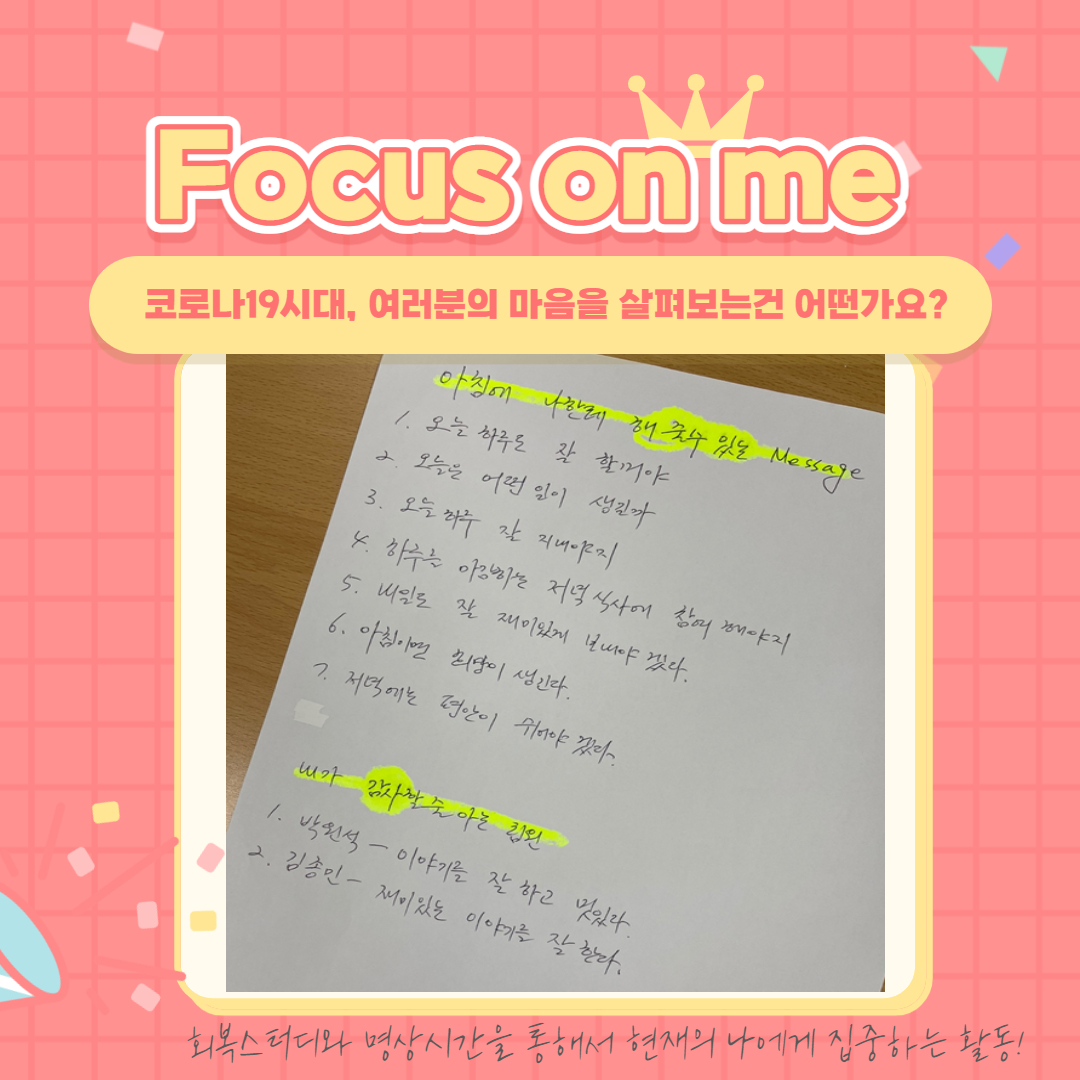 Focus on me
코로나19시대, 여러분의 마음을 살펴보는건 어떤가요?
아침에 나한테 해 줄수 있는 Message
1. 오늘 하루도 잘 할꺼야
2. 오늘은 어떤 일이 생길까
3. 오늘 하루 잘 지내야지
4. 하루를 마감하는 저녁식사에 참여 해야지
5. 내일도 잘 재미있게 보내야 겠다.
6. 아침이면 희망이 생긴다.
7. 저녁에는 편안이 쉬어야 겠다.
내가 감사할 줄 아는 팀원
1. 박원석 - 이야기를 잘 하고 멋있다.
2. 김종민 - 재미있는 이야기를 잘 한다.
회복스터디와 명상시간을 통해서 현재의 나에게 집중하는 활동!